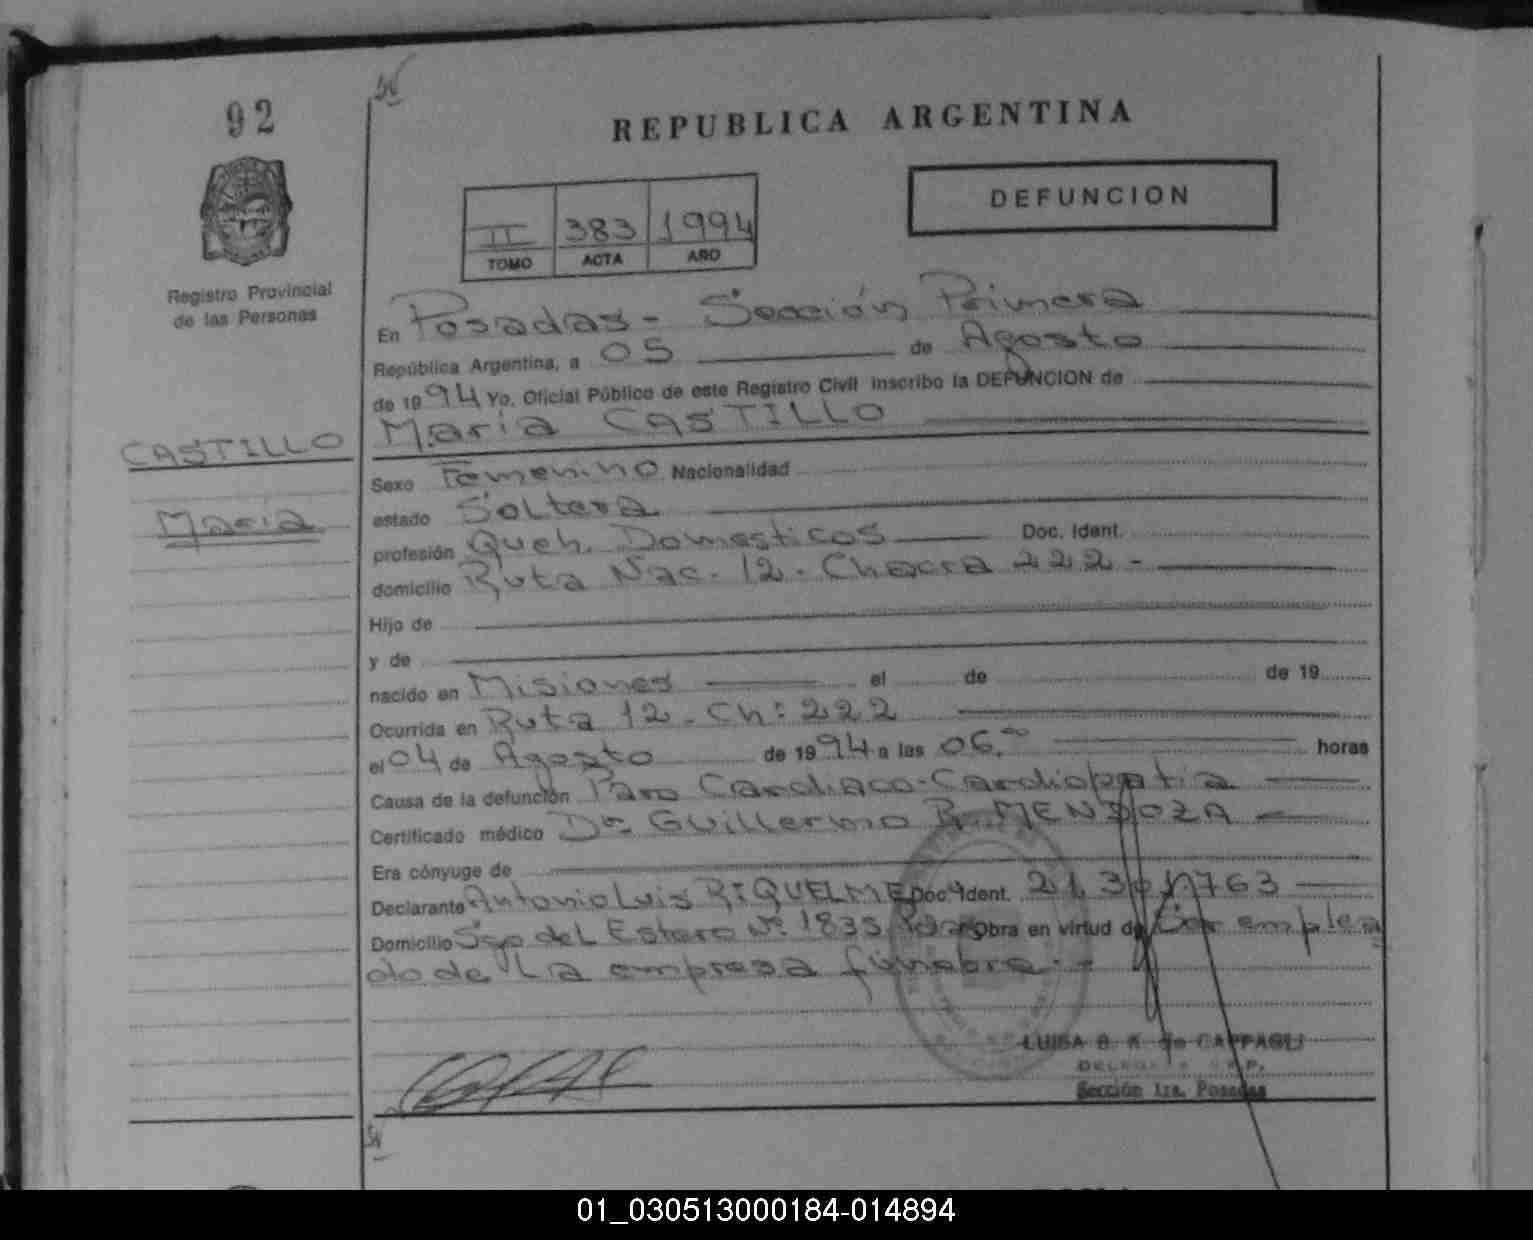 92
REPUBLICA ARGENTINA
DEFUNCION
II 383 1994
TOMO ACTA AÑO
Registro Provincial
de las Personas
En Posadas - Sección Primera
República Argentina, a 05 de Agosto
de 1994 Yo, Oficial Público de este Registro Civil inscribo la DEFUNCION de
María CASTILLO
CASTILLO
María
Sexo Femenino Nacionalidad
estado Soltera
profesión Queh. Domesticos Doc. Ident.
domicilio Ruta Nac. 12 - Chacra 222 -
Hijo de
y de
nacido en Misiones el de de 19
Ocurrida en Ruta 12 - Ch: 222
el 04 de Agosto de 1994 a las 06.00 horas
Causa de la defunción Paro Cardiaco-Cardiopatia
Certificado médico Dr. Guillermo R. MENDOZA
Era cónyuge de
Declarante Antonio Luis RIQUELME Doc. Ident. 21.301.763
Domicilio Sgo del Estero Nº 1835 Obra en virtud de Ser emplea
do de La empresa fúnebre.-
LUISA de CAPPAGLI
Sección 1ra. Posadas
01_030513000184-014894